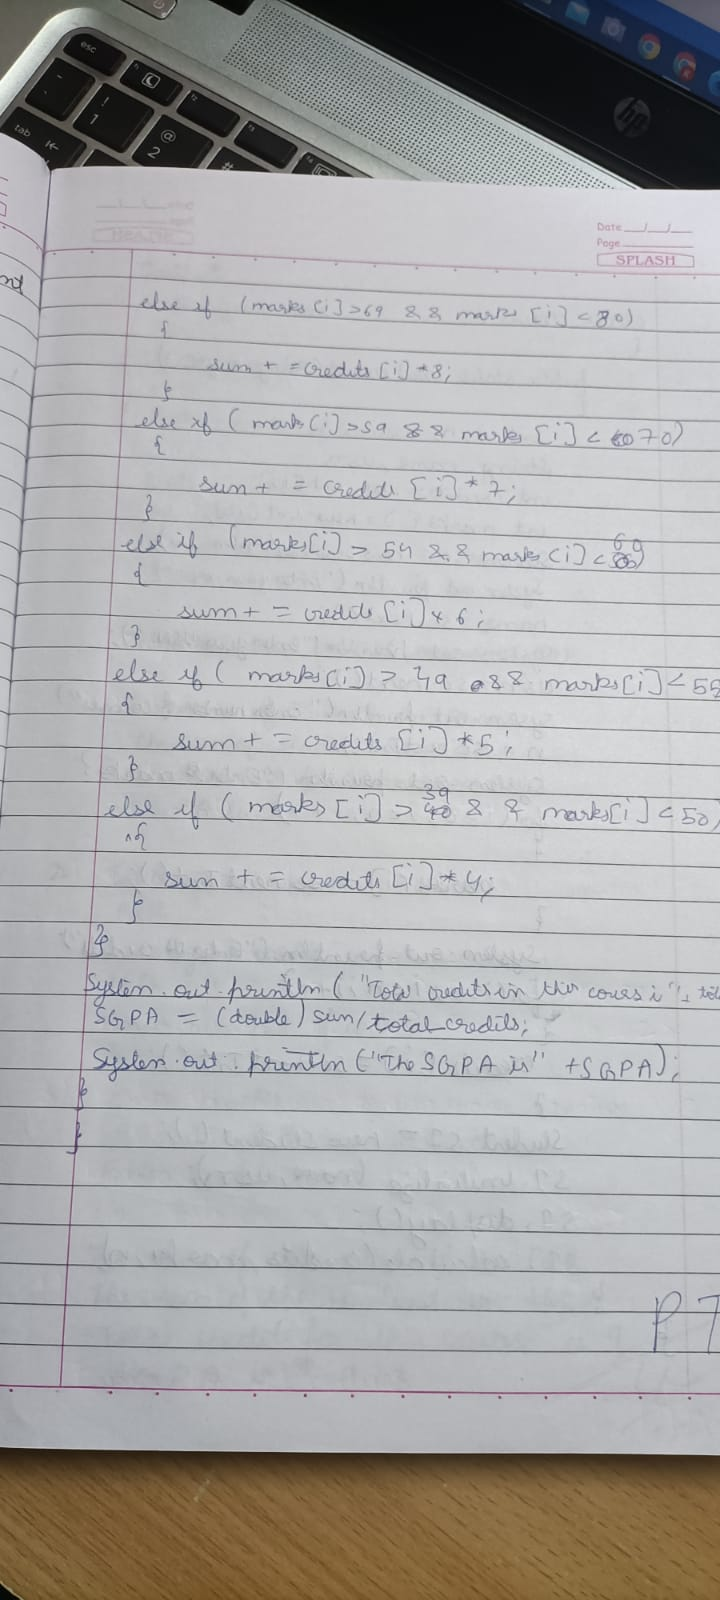 esc
!
1
@
2
#
tab
hp
Date
Page
SPLASH
else if (marks[i]>69 && marks [i] <80)
{
sum + =credits [i] *8;
}
else if ( marks[i]>59 && marks [i] < 70)
{
sum + = credits [i] * 7;
}
else if (marks[i] > 54 && marks [i] < 60)
{
sum + = credits [i] * 6;
}
else if ( marks[i] > 49 && marks[i] < 55
{
sum + = credits [i] *5;
}
else if ( marks [i] > 39 && marks[i] < 50)
{
sum + = credits [i] *4;
}
}
System.out.println ( "Total credits in this
SGPA = (double) sum/total credits;
System.out.println ("The SGPA is" +SGPA);
}
}